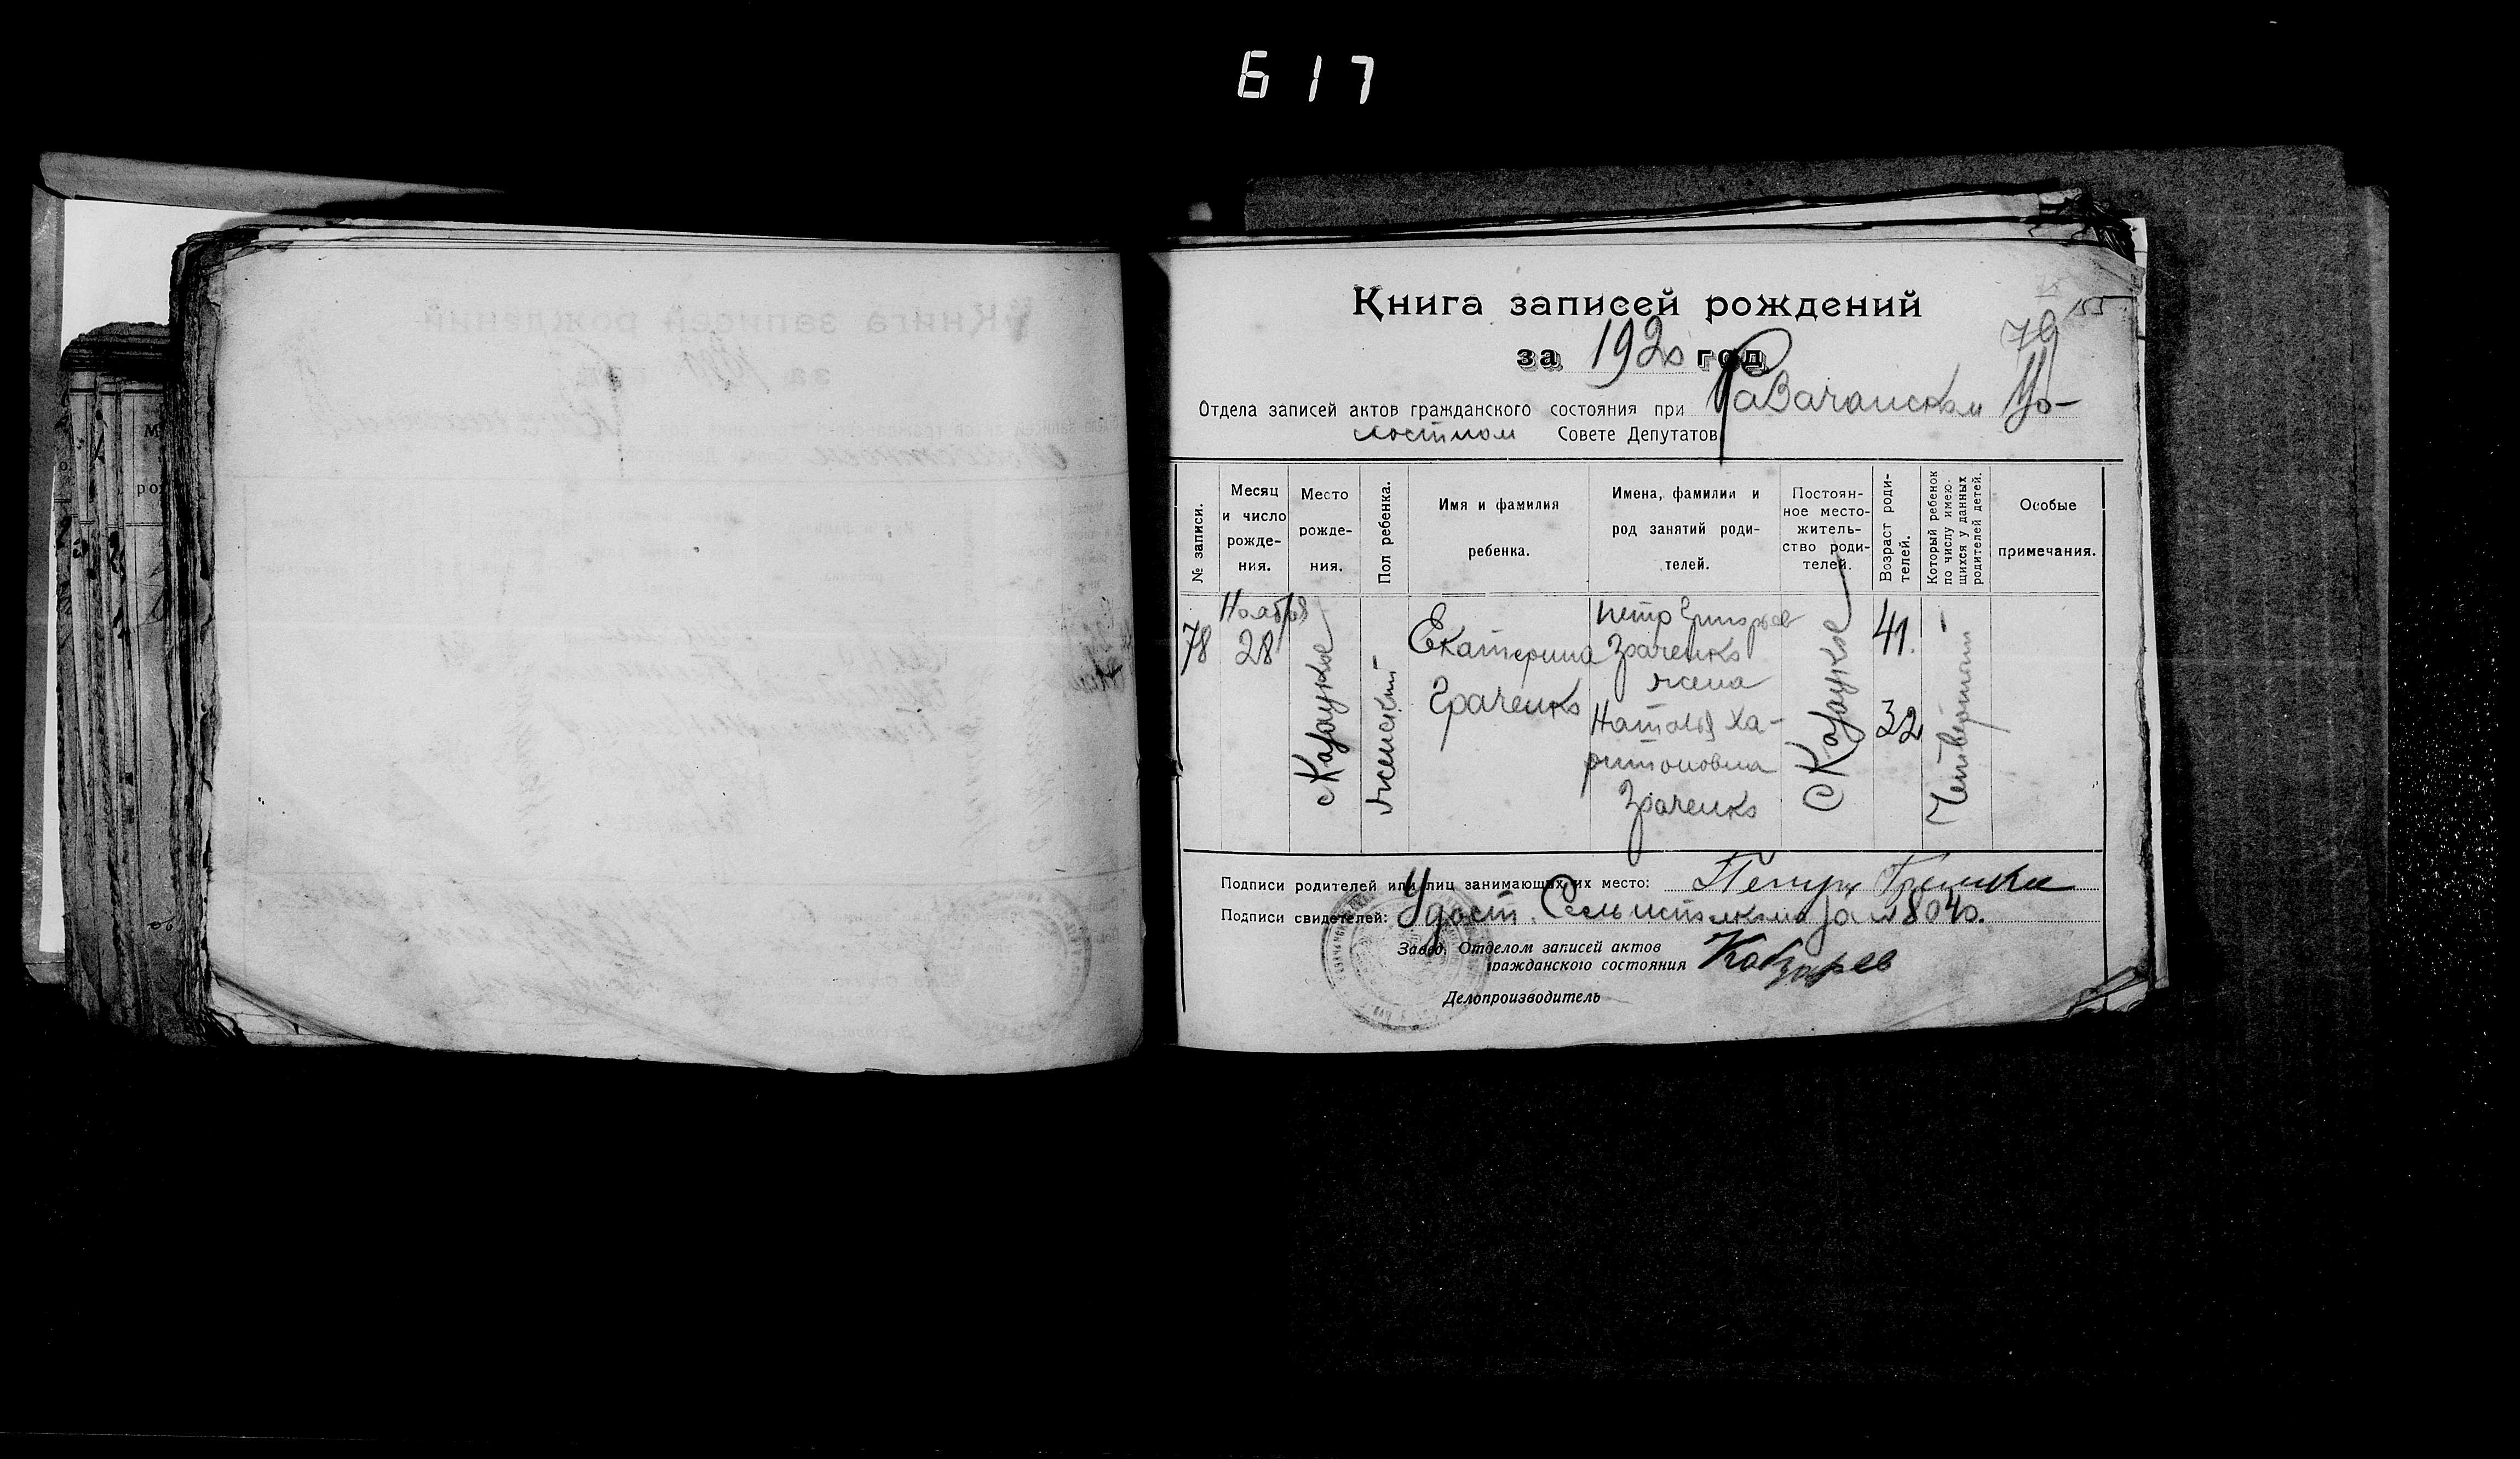 617
Книга записей рождений
155
79
за 1920 год
Отдела записей актов гражданского состояния при Равачанском Во-
лостном Совете Депутатов
№ записи.
Месяц и число рожде- ния.
Место рожде- ния.
Пол ребенка.
Имя и фамилия ребенка.
Имена, фамилии и род занятий роди- телей.
Постоян- ное место- житель- ство роди- телей.
Возраст роди- телей.
Который ребенок по числу имею- щихся у данных родителей детей.
Особые примечания.
78
Ноября
28
Женский
Екатерина
Граченко
Петр Григорьев
Граченко
жена
Наталья Ха-
ритоновна
Граченко
41.
32
Четвертый
Подписи родителей или лиц занимающих их место: Петр
Подписи свидетелей: Удост. Сельисполкома за № 8040.
Завед. Отделом записей актов
гражданского состояния
Делопроизводитель